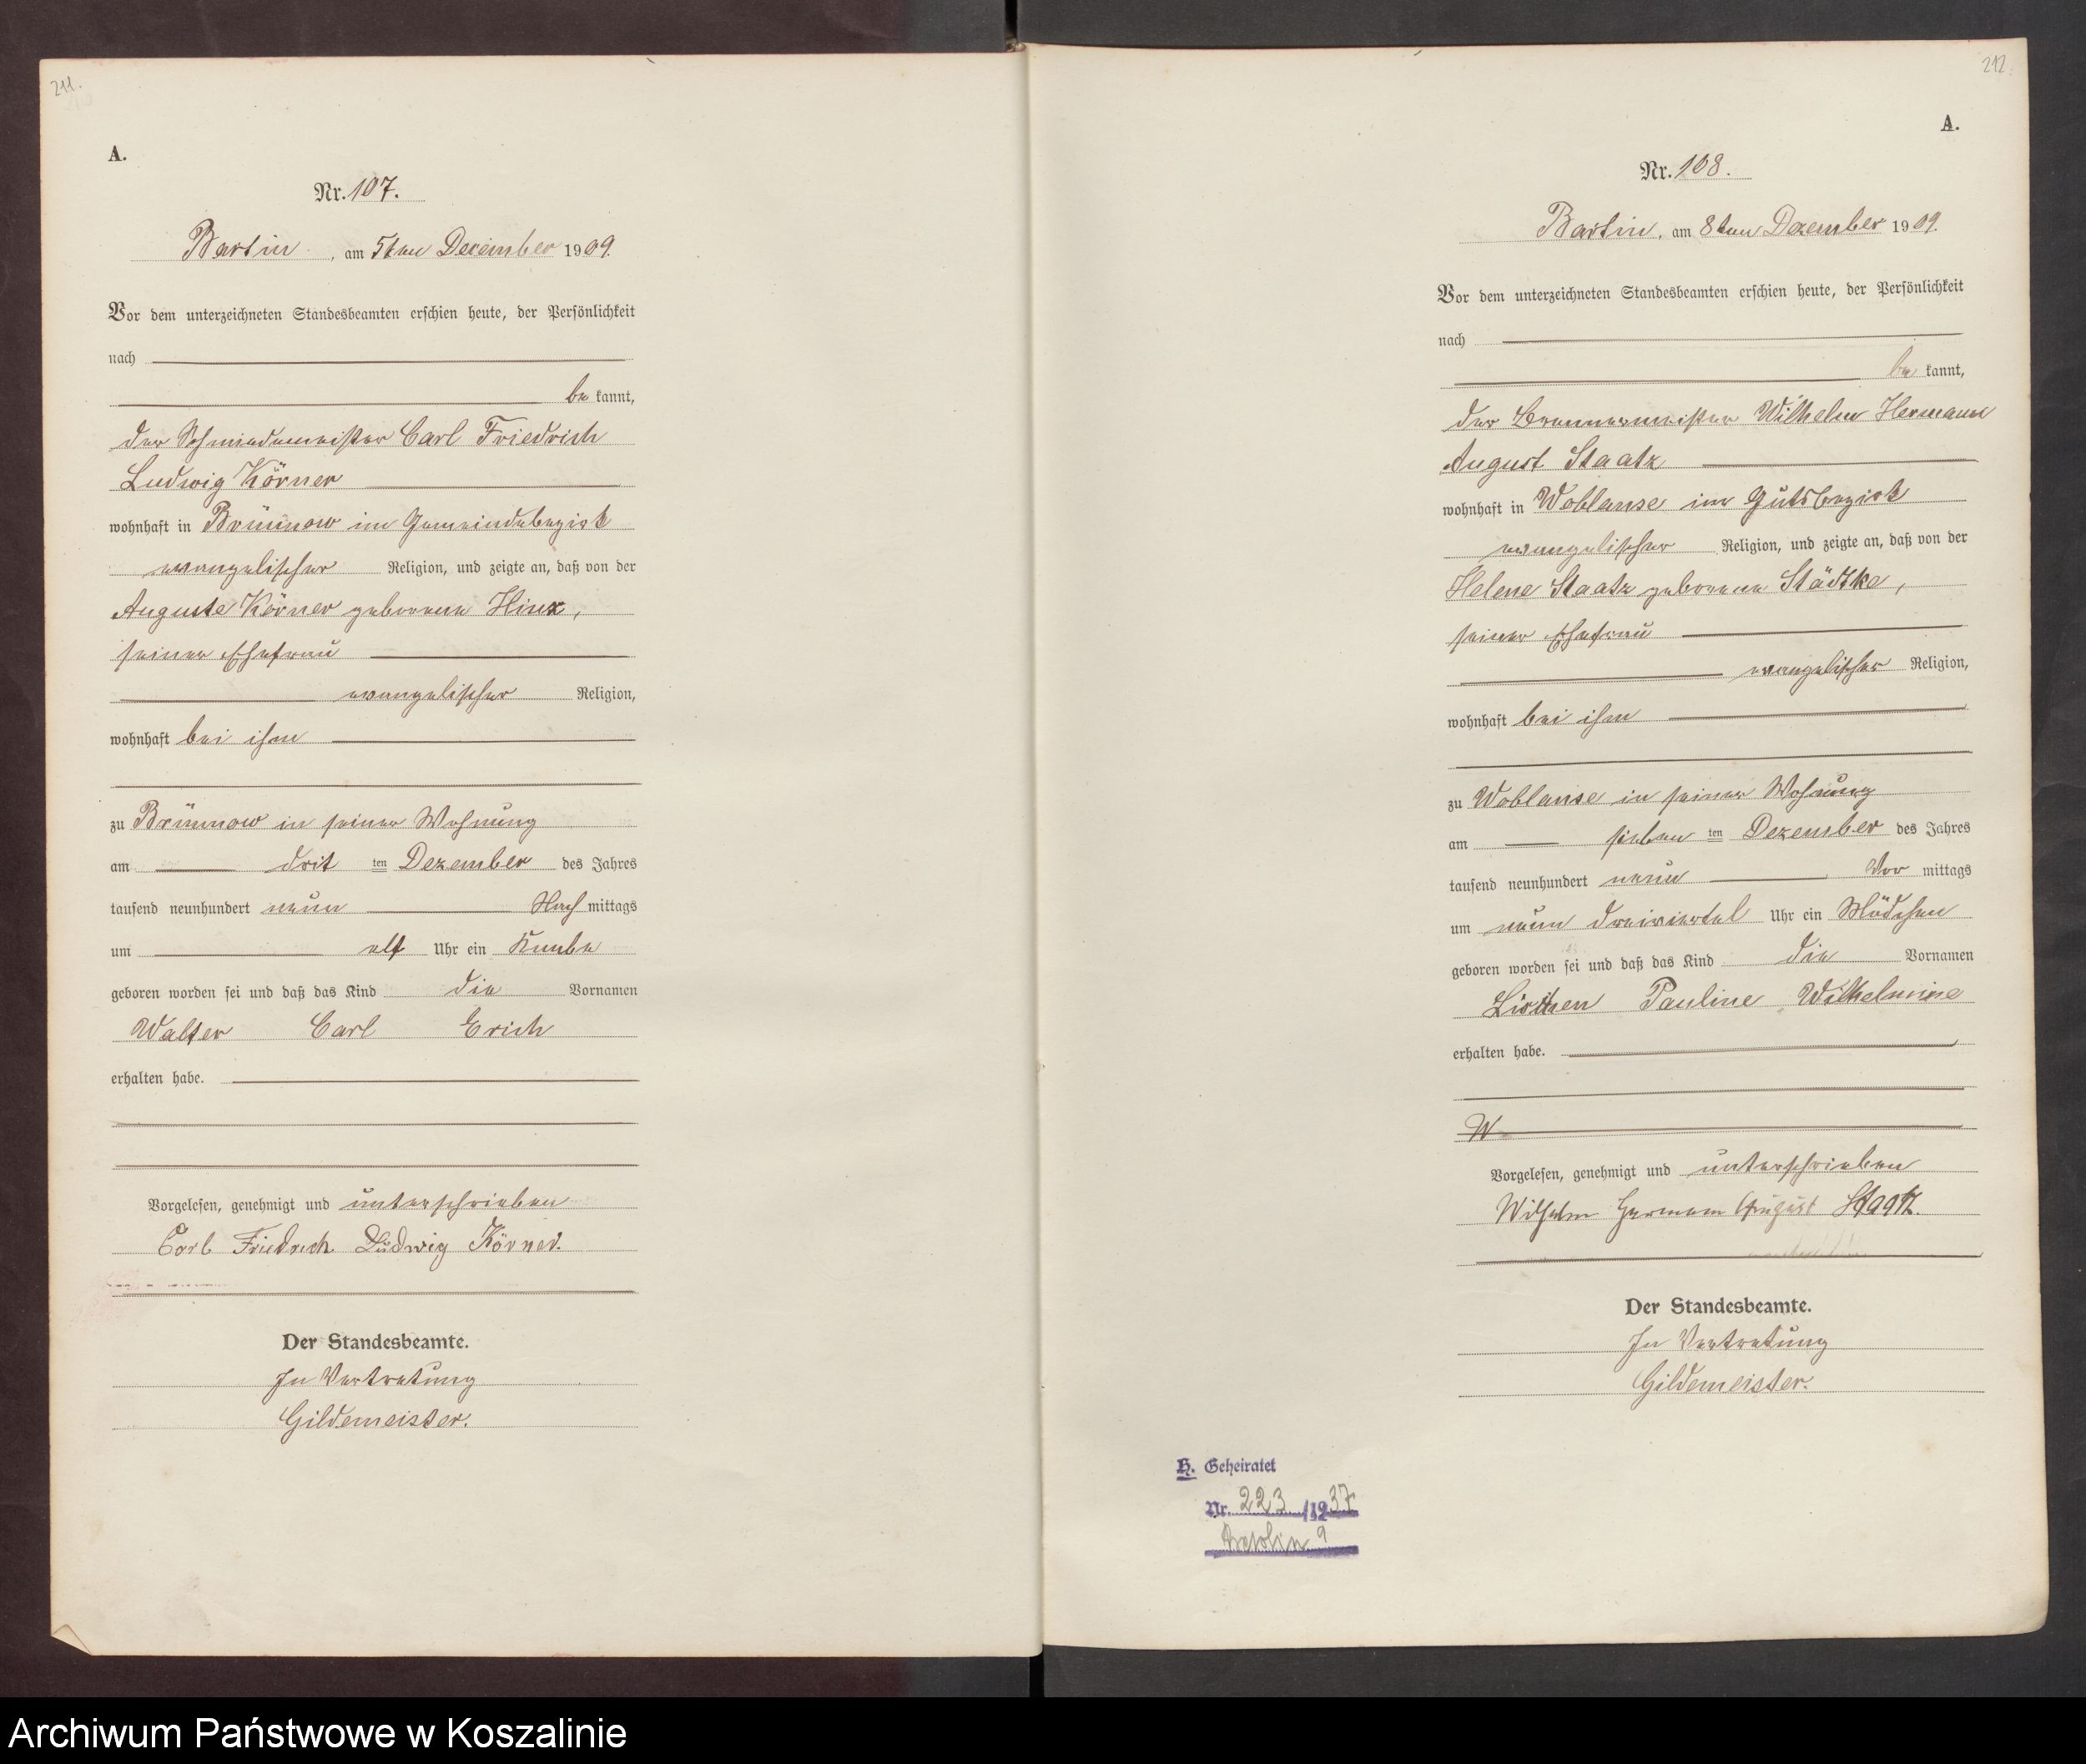 211.
A.
Nr. 107.
Bartin, am 5ten Dezember 1909.
Vor dem unterzeichneten Standesbeamten erschien heute, der Persönlichkeit
nach
be kannt,
der Schmiedemeister Carl Friedrich
Ludwig Körner
wohnhaft in Brünnow im Gemeindebezirk
evangelischer Religion, und zeigte an, daß von der
Auguste Körner geborene Hinz,
seiner Ehefrau
evangelischer Religion,
wohnhaft bei ihm
zu Brünnow in seiner Wohnung
am drit ten Dezember des Jahres
tausend neunhundert neun Nach mittags
um elf Uhr ein Knabe
geboren worden sei und daß das Kind die Vornamen
Walter Carl Erich
erhalten habe.
Vorgelesen, genehmigt und unterschrieben
Carl Friedrich Ludwig Körner.
Der Standesbeamte.
In Vertretung
Gildemeister.
212.
A.
Nr. 108.
Bartin, am 8ten Dezember 1909.
Vor dem unterzeichneten Standesbeamten erschien heute, der Persönlichkeit
nach
be kannt,
der Brennermeister Wilhelm Hermann
August Staatz
wohnhaft in Woblanse im Gutsbezirk
evangelischer Religion, und zeigte an, daß von der
Helene Staatz geborene Städtke,
seiner Ehefrau
evangelischer Religion,
wohnhaft bei ihm
zu Woblanse in seiner Wohnung
am sieben ten Dezember des Jahres
tausend neunhundert neun Vor mittags
um neun dreiviertel Uhr ein Mädchen
geboren worden sei und daß das Kind die Vornamen
Pauline Wilhelmine
erhalten habe.
W
Vorgelesen, genehmigt und unterschrieben
Wilhelm Hermann August Staatz.
Der Standesbeamte.
In Vertretung
Gildemeister.
H. Geheiratet
Nr. 223/1937
Archiwum Państwowe w Koszalinie